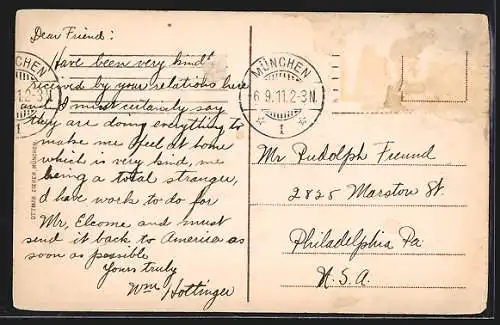 Dear Friend:
Have been very kindly
received by your relations here
and I must certainly say
they are doing everything to
make me feel at home
which is very kind, me
being a total stranger,
I have work to do for
Mr. Elcome and must
send it back to America as
soon as possible
Yours truly
Wm Hottinger
MÜNCHEN
6.9.11.2-3N.
1
Mr Rudolph Freund
2825 Marston St.
Philadelphia Pa.
U.S.A.
MÜNCHEN
1
OTTMAR ZIEHER, MÜNCHEN